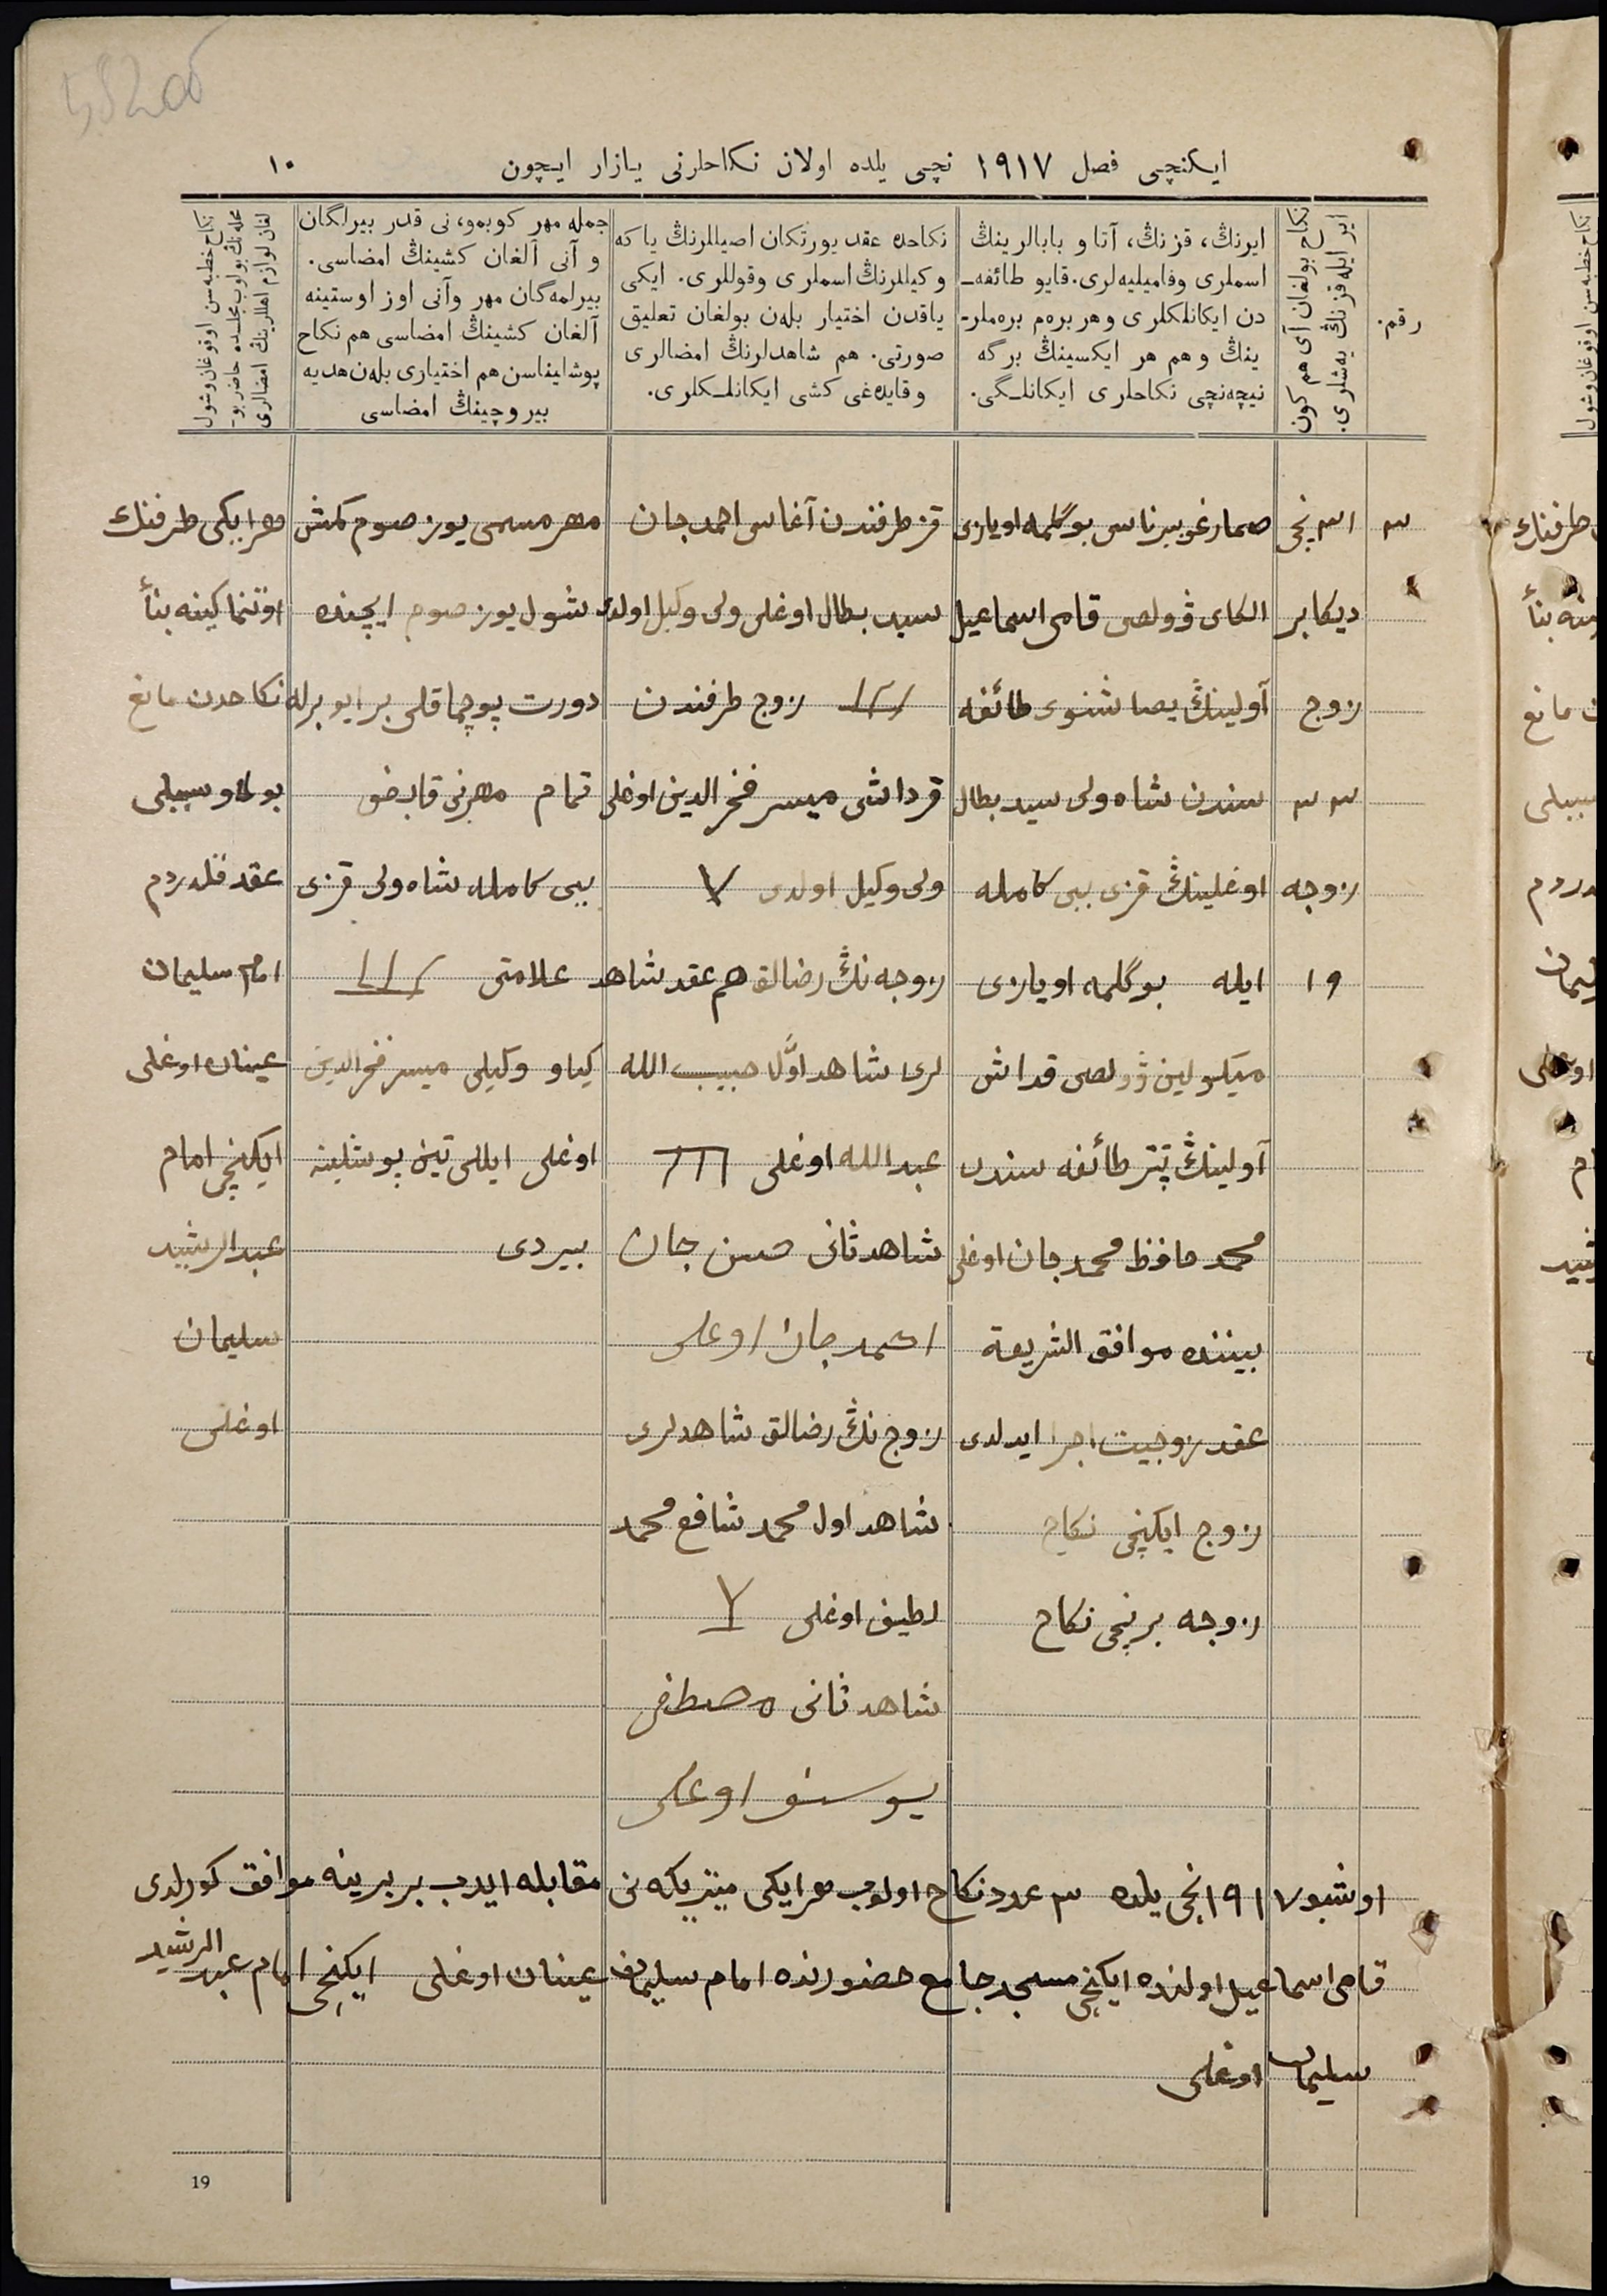 582об
ایکنچی فصل ١٩١٧ نچی یلده اولان نکاحلرنی یازار ایچون
١٠
رقم.
نکاح بولغان آی هم کون
ایر ایله قزنڭ یەشلری.
ایرنڭ، قزنڭ، آتا و بابالرینڭ
اسملری وفامیلیه‌لری. قایو طائفه‌ـ
دن ایکانلکلری و هر برەم برەملرـ
ینڭ و هم هر ایکسینڭ برگه
نیچه‌نچی نکاحلری ایکانلـگی.
نکاحده عقد یورتکان اصیللرنڭ یا که
وکیللرنڭ اسملری وقوللری. ایکی
یاقدن اختیار بلەن بولغان تعلیق
صورتی. هم شاهدلرنڭ امضالری
و قایده‌غی کشی ایکانلـکلری.
جمله مهر کوبمو، نی قدر بیرلگان
و آنی آلغان کشینڭ امضاسی.
بیرلمه‌گان مهر وآنی اوز اوستینه
آلغان کشینڭ امضاسی هم نکاح
پوشلیناسن هم اختیاری بلەن هدیه
بیروچینڭ امضاسی
نکاح خطبه سن اوقوغان وشول
محله نڭ بولوب مجلسده حاضر بوـ
لغان لوازم اهللرینڭ امضالری
٣
٣١ نچی
دیکابر
زوج
٣٣
زوجه
١٩
صمارغوبیرناسی بوگلمه اویازی
الکای ۋولصی قامی اسماعیل
آولینڭ یصاشنوی طائفه
سندن شاه ولی سید بطال
اوغلینڭ قزی بیبی کامله
ایله بوگلمه اویازی
میکولین ۋولصی قداش
آولینڭ تپتر طائفه سندن
محمد حافظ محمدجان اوغلی
بیننده موافق الشریعة
عقد زوجیت اجرا ایدلدی
زوج ایکنچی نکاح
زوجه برنچی نکاح
قز طرفندن آغاسی احمدجان
سید بطال اوغلی ولی وکیل اولدی
زوج طرفندن
قرداشی میسر فخرالدین اوغلی
ولی وکیل اولدی
زوجه نڭ رضالق هم عقد شاهد
لری شاهد اوّل حبیب الله
عبدالله اوغلی
شاهد ثانی حسن جان
احمدجان اوغلی
زوج نڭ رضالق شاهدلری
شاهد اول محمد شافع محمد
لطیف اوغلی
شاهد ثانی مصطفی
یوسف اوغلی
مهر مسمی یوز صوم کمش
شول یوز صوم ایچنده
دورت پوچماقلی بر ایو برله
تمام مهرنی قابض
بیبی کامله شاه ولی قزی
علامتی
کیاو وکیلی میسر فخرالدین
اوغلی ایللی تین پوشلینه
بیردی
هر ایکی طرفنڭ
اوتنماکینه بنأ
نکاحدن مانع
بولماو سببلی
عقد قلدردم
امام سلیمان
عینان اوغلی
ایکنچی امام
عبدالرشید
سلیمان
اوغلی
اوشبو ١٩١٧ نچی یلده ٣ عدد نکاح اولوب هر ایکی میتریکه نی مقابله ایدب بربرینه موافق کورلدی
قامی اسماعیل اولنده ایکنچی مسجد جامع حضورنده امام سلیمان عینان اوغلی ایکنچی امام عبدالرشید
سلیمان اوغلی
19